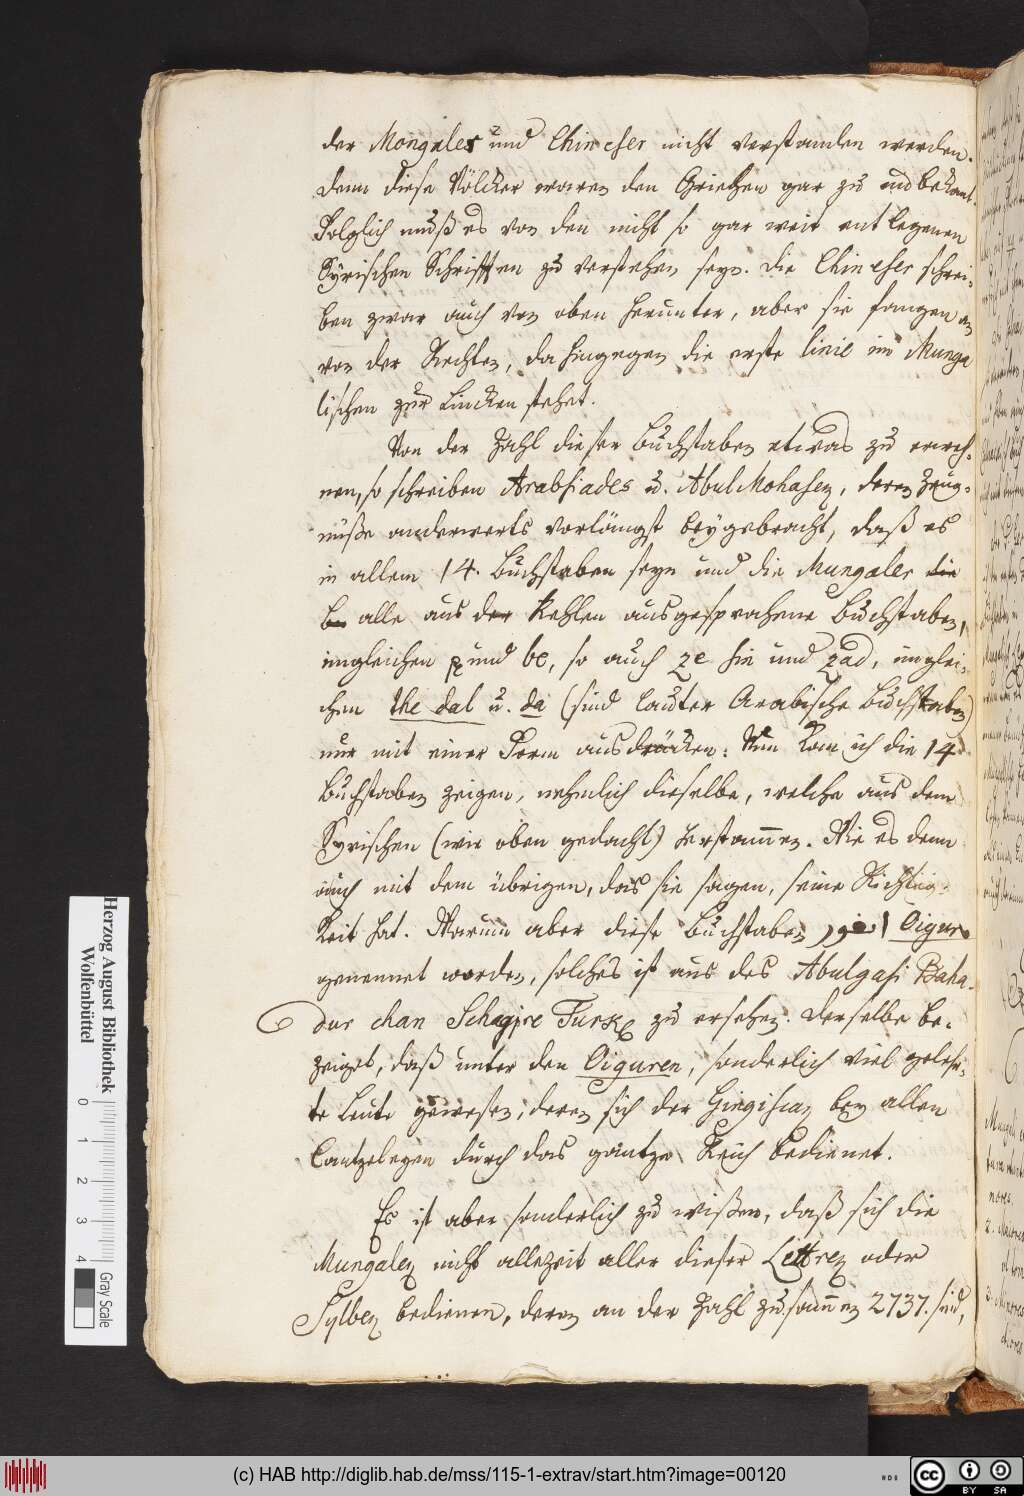 der Mongaler und Chineser nicht verstanden werden.
denn diese Völcker waren den Griechen gar zu unbekant.
Folglich muß es von den nicht so gar weit entlegenen
Syrischen Schrifften zu verstehen seyn. die Chineser schrei-
ben zwar auch von oben herunter, aber sie fangen an
von der Rechten, da hingegen die erste linie im Munga
lischen zur Lincken stehet.
Von der Zahl dieser Buchstaben etwas zu erweh-
nen, so schreiben Arabsiades u. Abul Mohasen, deren Zeug-
nüße anderwerts vorlängst beygebracht, daß es
in allem 14. Buchstaben seyn und die Mungaler die
be alle aus der Kehlen ausgesprochene Buchstaben,
imgleichen p und be, so auch ze sin und zad, imglei-
chen the dal u. da (sind lauter Arabische Buchstaben)
nur mit einer Form ausdrücken. Nun kan ich die 14
Buchstaben zeigen, nehmlich dieselbe, welche aus dem
Syrischen (wie oben gedacht) herstammen. Wie es denn
auch mit dem übrigen, das sie sagen, seine Richtig-
keit hat. Warum aber diese Buchstaben Oigur
genennet worden, solches ist aus des Abulgasi Baha-
dur chan Schegjre Turkj zu ersehen. Derselbe be-
zeiget, daß unter den Oiguren, sonderlich viel gelehr-
te Leute gewesen, deren sich der Gingischan bey allen
Cantzeleyen durch das gantze Reich bedienet.
Es ist aber sonderlich zu wißen, daß sich die
Mungalen nicht allezeit aller dieser Lettren oder
Sylben bedienen, deren an der Zahl zusammen 2737. sind,
Herzog August Bibliothek
Wolfenbüttel
0 1 2 3 4
Gray Scale
(c) HAB http://diglib.hab.de/mss/115-1-extrav/start.htm?image=00120
cc BY SA